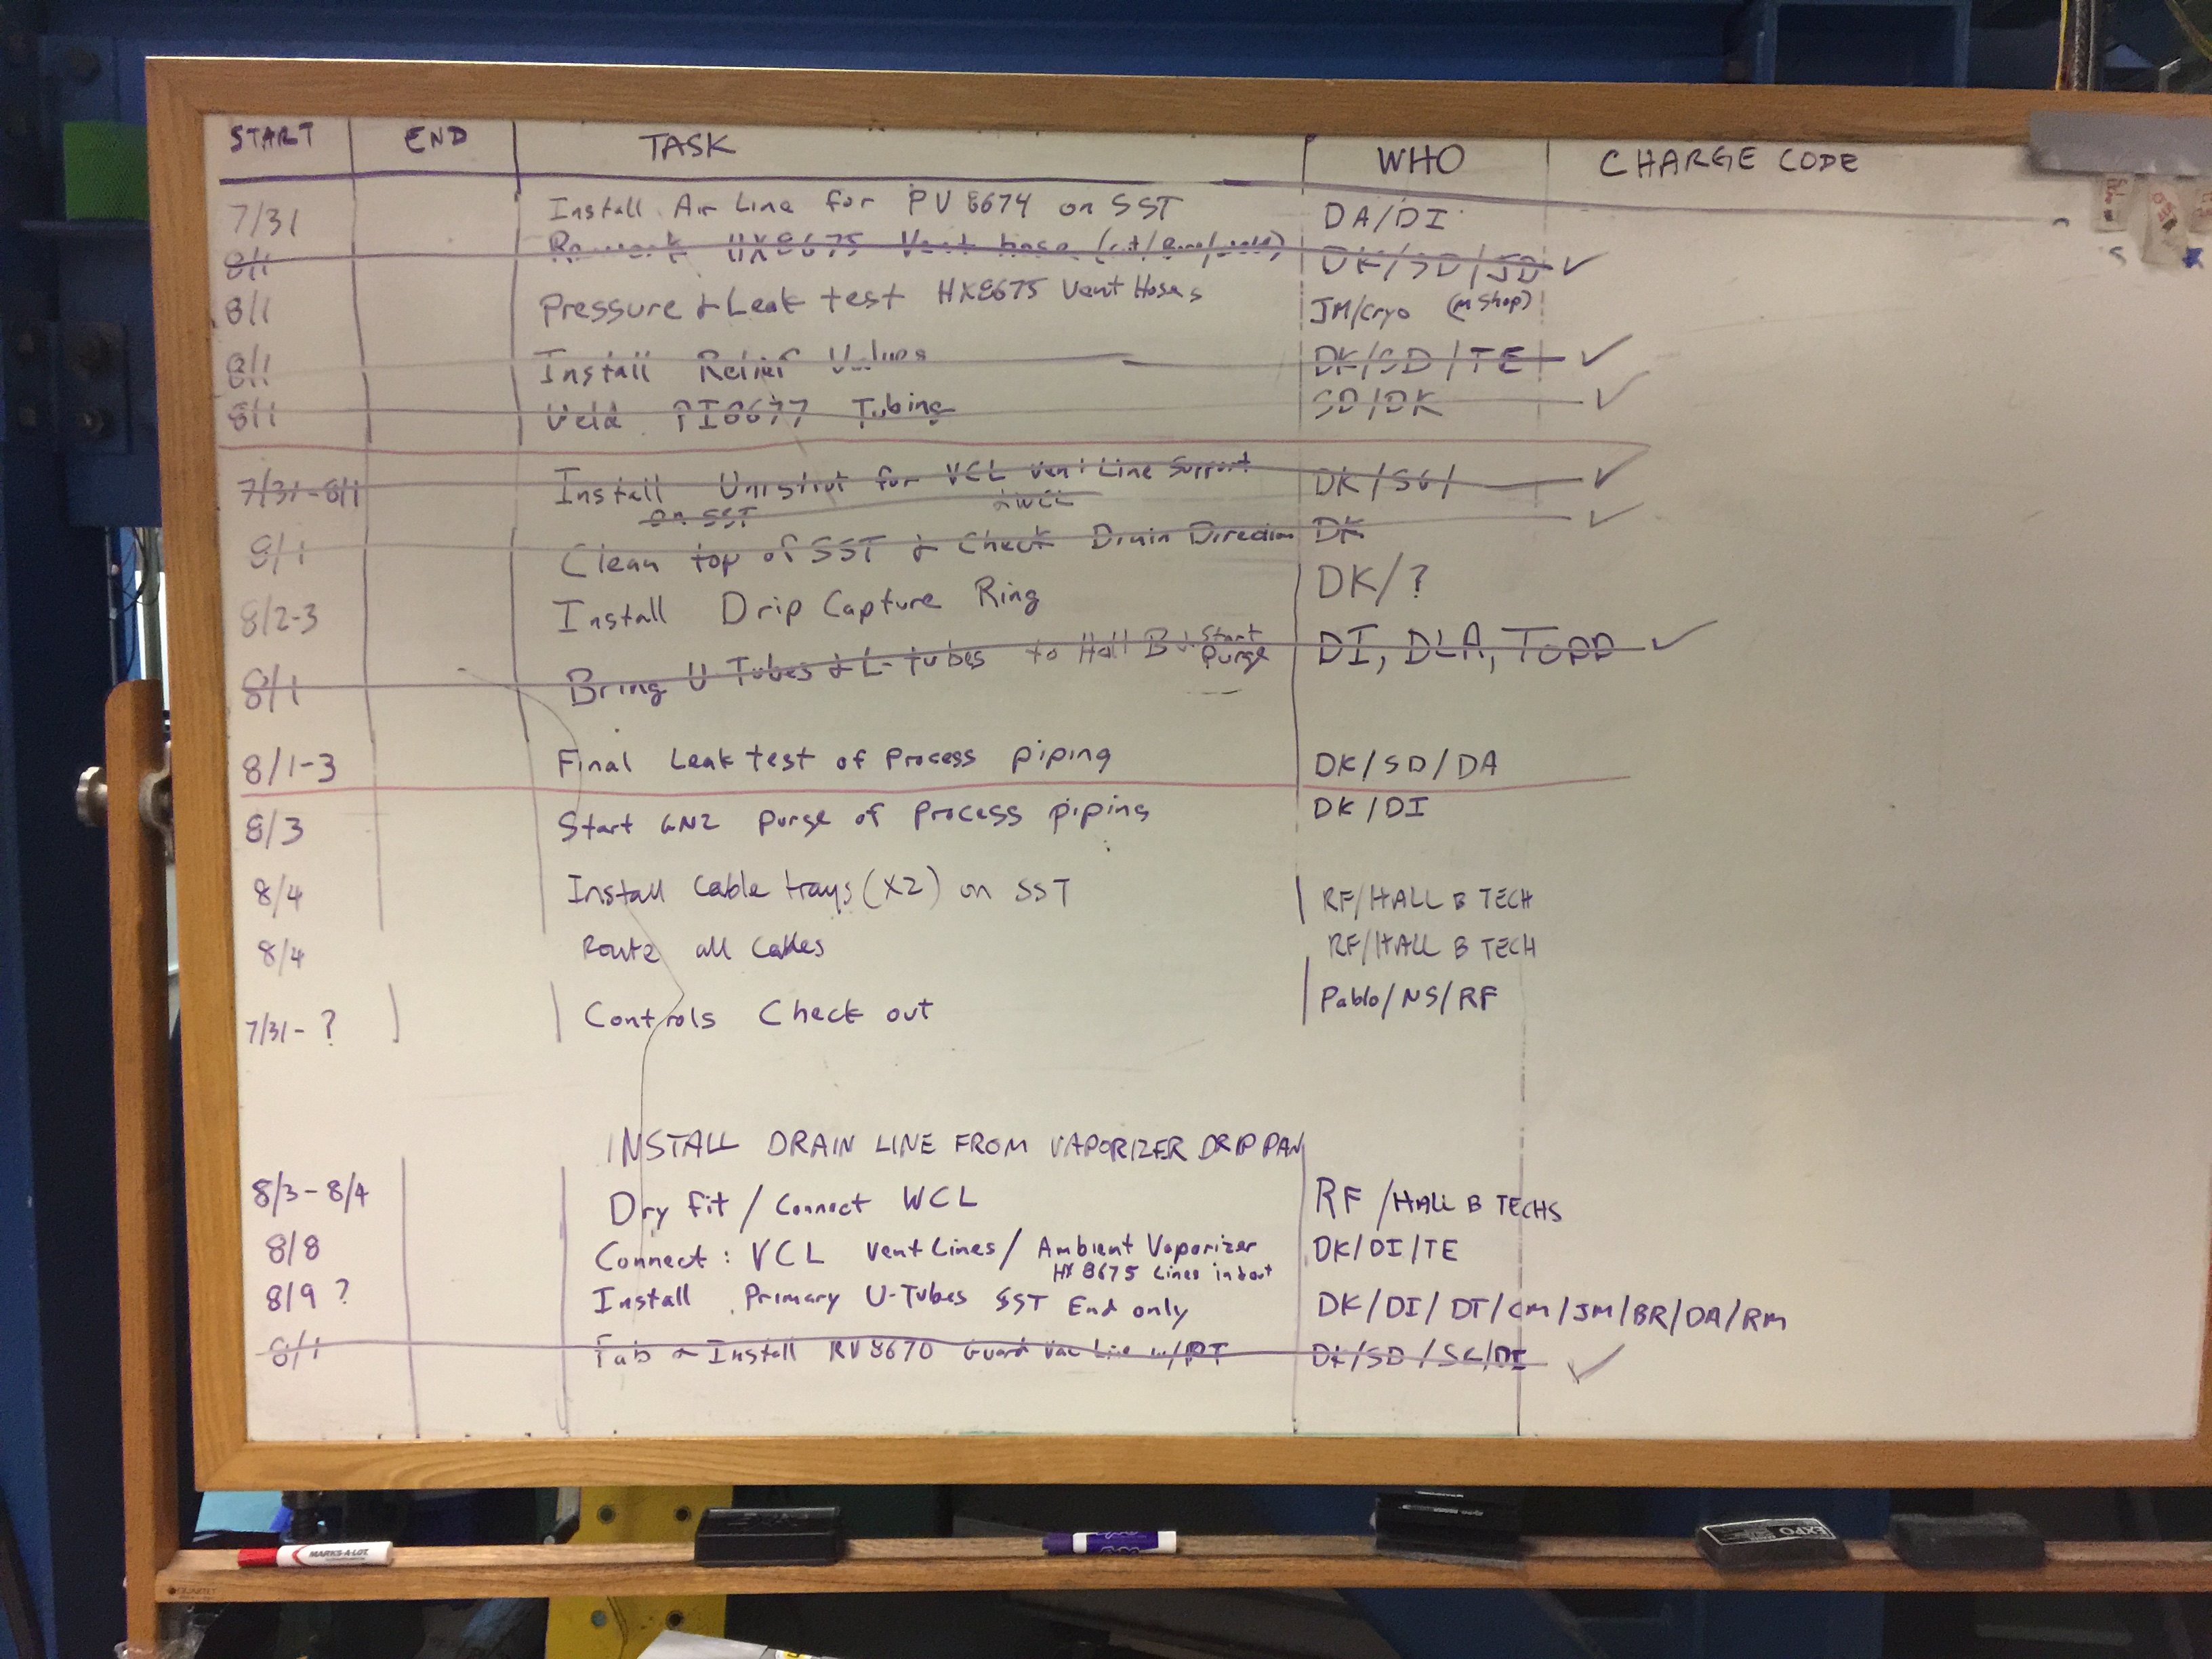 START END TASK WHO CHARGE CODE
7/31 Install Air Line for PV 8674 on SST DA/DI
8/1 Rework HX8675 Vent hose (cut/ DK/SD/JD ✓
8/1 Pressure & Leak test HX8675 Vent Hoses JM/Cryo (M Shop)
8/1 Install Relief Valves DK/SD/TE ✓
8/1 Weld PI8677 Tubing SD/DK ✓
7/31-8/1 Install Unistrut for VCL Vent Line Support DK/SG/ ✓
on SST & WCL
8/1 Clean top of SST & Check Drain Direction DK ✓
8/2-3 Install Drip Capture Ring DK/?
8/1 Bring U-Tubes & L-tubes to Hall B Start Purge DI, DLA, TODD ✓
8/1-3 Final Leak test of Process piping DK/SD/DA
8/3 Start GN2 Purge of Process piping DK/DI
8/4 Install Cable trays (X2) on SST RF/HALL B TECH
8/4 Route all Cables RF/HALL B TECH
7/31-? Controls Check out Pablo/NS/RF
INSTALL DRAIN LINE FROM VAPORIZER DRIP PAN
8/3-8/4 Dry fit / Connect WCL RF/HALL B TECHS
8/8 Connect: VCL Vent Lines/ Ambient Vaporizer DK/DI/TE
HX 8675 Lines in & out
8/9 ? Install Primary U-Tubes SST End only DK/DI/DT/CM/JM/BR/DA/RM
8/1 Fab & Install RV8670 Guard Vac Line w/PT DK/SD/SG/DI ✓
MARKS-A-LOT
EXPO
QUARTET